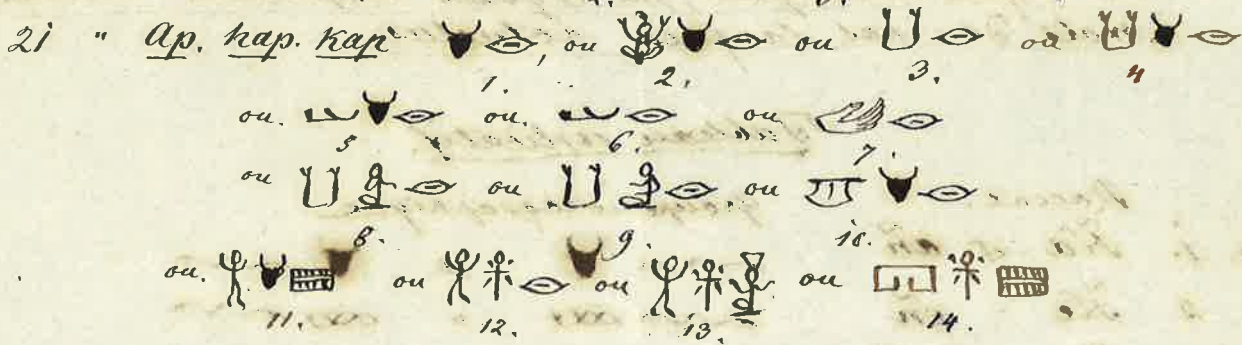 21 " Ap. hap. Kap , ou ou ou
1. 2. 3. 4
ou. ou. ou
5 6. 7.
ou ou ou
8. 9. 10.
ou. ou ou ou
11. 12. 13. 14.